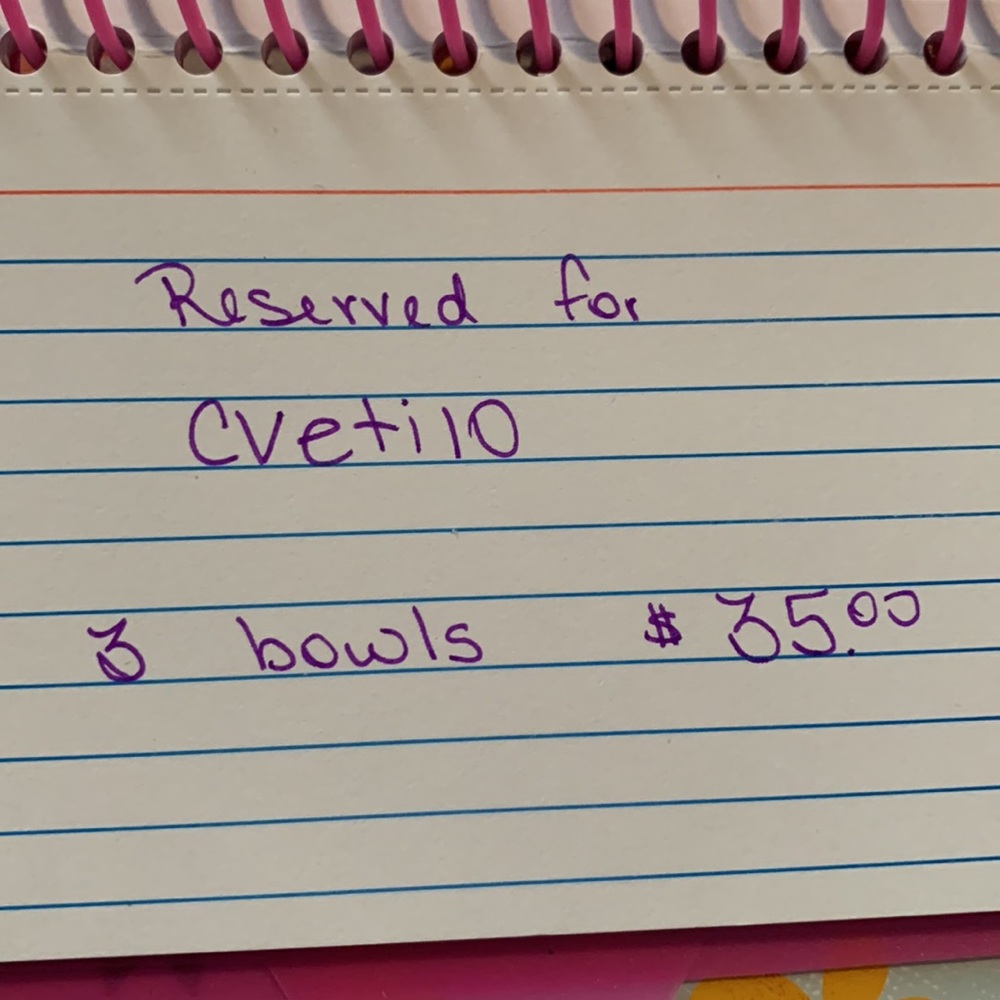 Reserved for
Cveti10
3 bowls $35.00